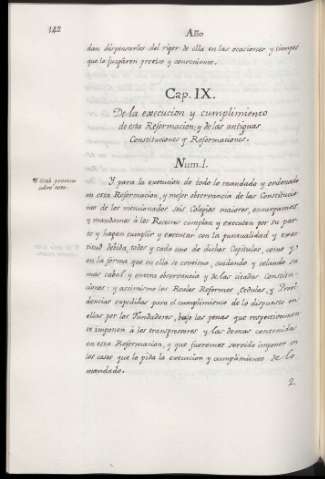 142
Año
dan dispensarles del rigor de ella en las ocaciones y tiempos
que lo juzgaren preciso y conveniente.
Cap. IX.
De la execucion y cumplimiento
de esta Reformacion; y de las antiguas
Constituciones y Reformaciones.
Num. I.
sobre esto.
Y para la execucion de todo lo mandado y ordenado
en esta Reformacion, y mejor observancia de las Constitucio-
nes de los mencionados seis Colegios maiores, encargamos
y mandamos à los Rectores cumplan y executen por su par-
te y hagan cumplir y executar con la puntualidad y exac-
titud debida, todos y cada uno de dichos Capitulos, como y
en la forma que en ella se contiene, cuidando y celando su
mas cabal y entera observancia y de las citadas Constitu-
ciones: y assimismo las Reales Reformas, Cedulas, y Provi-
dencias expedidas para el cumplimiento de lo dispuesto en
ellas por los Fundadores, bajo las penas que respectivamente
se imponen à los transgresores y las demas contenidas
en esta Reformacion, y que fueremos servido imponer en
los casos que lo pida la execucion y cumplimiento de lo
mandado.
2.